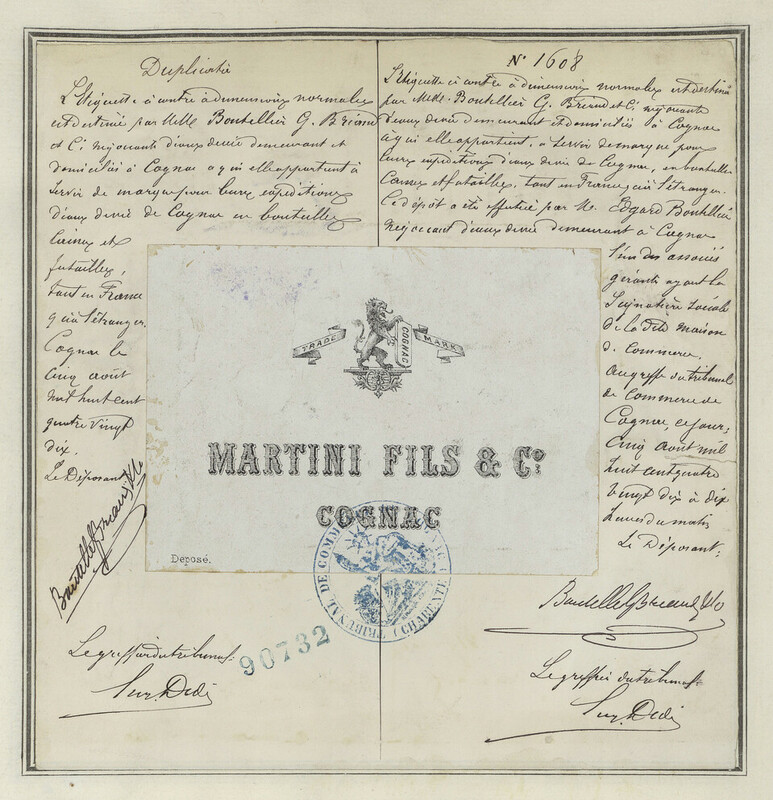 Duplicata
L'Etiquette ci contre à dimensions normales
est destinée par MMrs Boutellier G. Briand
et Cie négociants d'eaux de vie demeurant et
domiciliés à Cognac à qui elle appartient à
servir de marque pour leurs expéditions
d'eaux de vie de Cognac en bouteilles
Caisses et
futailles,
tant en France
qu'à l'étranger.
Cognac le
Cinq août
mil huit cent
quatre vingt
dix.
Le Déposant
Boutellier G Briand & Co
Le greffier du tribunal:
N° 1608
L'Etiquette ci contre à dimensions normales est destinée
par MMrs. Boutellier G. Briand et Cie négociants
d'eaux de vie demeurant et domiciliés à Cognac
à qui elle appartient, à servir de marque pour
leurs expéditions d'eaux de vie de Cognac, en bouteilles
Caisses et futailles, tant en France qu'à l'étranger.
Ce dépôt a été effectué par M. Edgard Boutellier
négociant d'eaux de vie demeurant à Cognac
l'un des associés
gérants ayant la
Signature sociale
de la dite maison
de Commerce.
Au greffe du tribunal
de Commerce de
Cognac, ce jour,
Cinq août mil
huit cent quatre
vingt dix à dix
heures du matin
Le Déposant:
Boutellier G Briand & Co
Le greffier du tribunal:
TRADE MARK
COGNAC
MARTINI FILS & Co.
COGNAC
Déposé.
TRIBUNAL DE COMMERCE COGNAC (CHARENTE)
90732